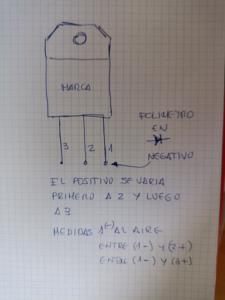 MARCA
3 2 1
POLIMETRO
EN
NEGATIVO
EL POSITIVO SE VARIA
PRIMERO A 2 Y LUEGO
A 3
MEDIDAS 1(-) AL AIRE
ENTRE (1-) Y (2+)
ENTRE (1-) Y (3+)